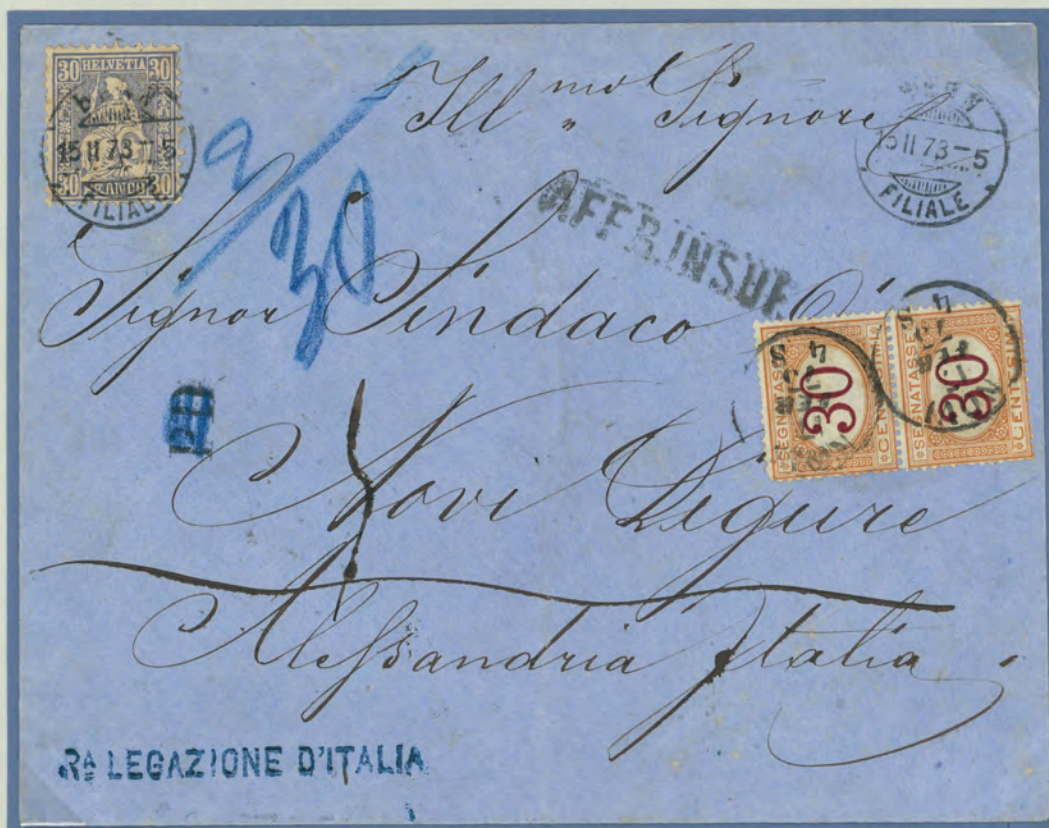 30 HELVETIA 30
15 II 73 - 5
30 FRANCO 30
FILIALE
2/30
Ill.mo Sr Signore
BERN
15 II 73 - 5
FILIALE
AFFR.INSUF.
Signor Sindaco di
SEGNATASSE
30
CENTESIMI
SEGNATASSE
30
CENTESIMI
NOVI
FEB
73
4 S
PD
Novi Ligure
Alessandria Italia.
Ra LEGAZIONE D'ITALIA